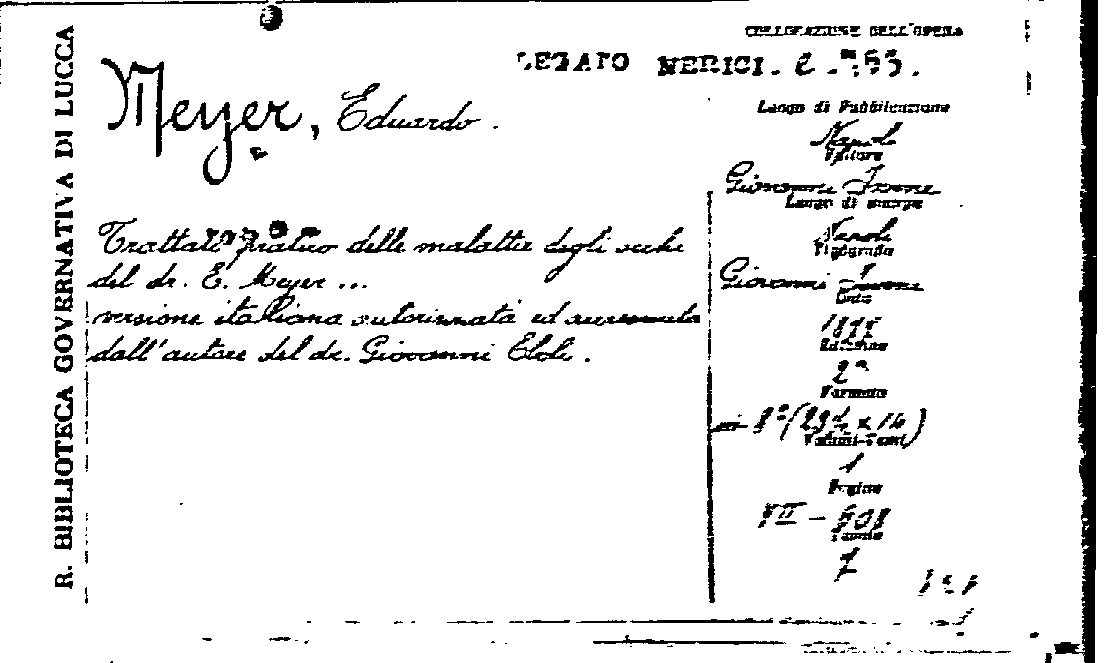 R. BIBLIOTECA GOVERNATIVA DI LUCCA
COLLOCAZIONE DELL'OPERA
LEGATO NERICI.
Meyer, Eduardo.
Trattato pratico delle malattie degli occhi
del dr. E. Meyer ...
versione italiana autorizzata ed accresciuta
dall'autore del dr. Giovanni
Luogo di Pubblicazione
Napoli
Editore
Giovanni Jovene
Luogo di stampa
Napoli
Tipografia
Giovanni Jovene
Data
Edizione
2ª
Formato
in 8°
Volumi-Tomi
1
Pagine
VII -
Tavole